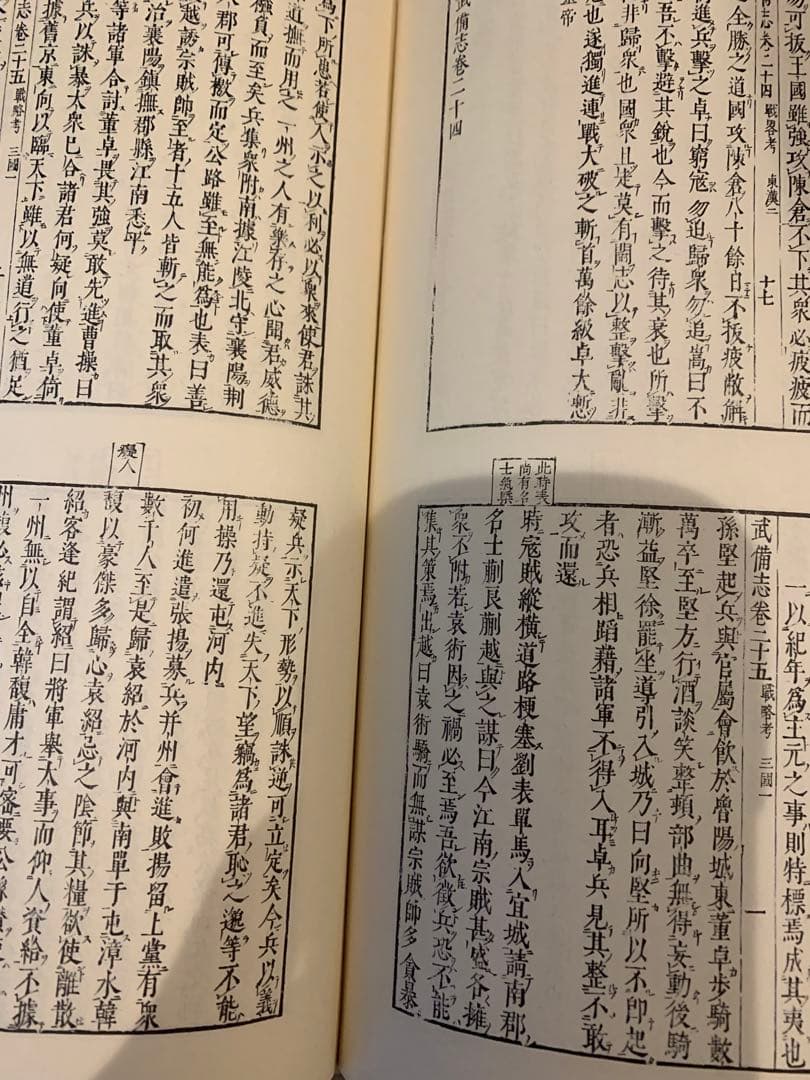 可拔王國雖強攻陳倉不下其衆必疲疲而
備志卷二十四 戰畧考 東漢二 十七
全勝之道國攻陳倉八十餘日不拔疲敝解
進兵擊之卓曰窮寇勿迫歸衆勿追嵩曰不
吾不擊避其銳也今而擊之待其衰也所擊
非歸衆也國衆且走莫有鬬志以整擊亂非
也遂獨進連戰大破之斬首萬餘級卓大慙
武備志卷二十四
一以紀年爲主元之事則特標焉成其夷也
武備志卷二十五 戰略考 三國一 一
孫堅起兵與官屬會飲於魯陽城東董卓步騎數
萬卒至堅方行酒談笑整頓部曲無得妄動後騎
漸益堅徐罷坐導引入城乃曰向堅所以不即起
者恐兵相蹈藉諸軍不得入耳卓兵見其整不敢
攻而還
此時表
尚有名
士氣槩
時寇賊縱橫道路梗塞劉表單馬入宜城請南郡
名士蒯良蒯越與之謀曰今江南宗賊甚盛各擁
衆不附若袁術因之禍必至焉吾欲徵兵恐不能
集其策焉出越曰袁術驕而無謀宗賊帥多貪暴
爲下所患若使人示之以利必以衆來使君誅其
道撫而用之一州之人有樂存之心聞君威德
襁負而至矣兵集衆附南據江陵北守襄陽荆
郡可傳檄而定公路雖至無能爲也表曰善
越誘宗賊帥至者十五人皆斬之而取其衆
治襄陽鎮撫郡縣江南悉平
等諸軍合討董卓畏其強莫敢先進曹操曰
兵以誅暴大衆已合諸君何疑向使董卓倚
據舊京東向以臨天下雖以無道行之猶足
志卷二十五 戰略考 三國一
疑兵示天下形勢以順誅逆可立定矣今兵以義
動持疑不進失天下望竊爲諸君恥之邈等不能
用操乃還屯河内
初何進遣張揚募兵并州會進敗揚留上黨有衆
數千人至是歸袁紹於河内與南單于屯漳水韓
馥以豪傑多歸心袁紹忌之陰節其糧欲使離散
紹客逢紀謂紹曰將軍舉大事而仰人資給不據
一州無以自全韓馥庸才可密要公孫